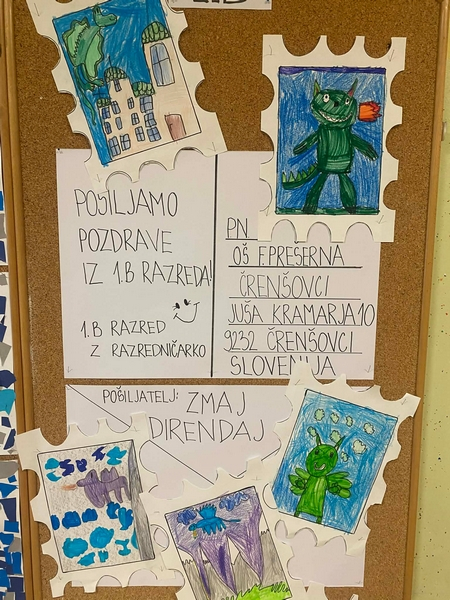 POŠILJAMO
POZDRAVE
IZ 1.B RAZREDA!
1.B RAZRED
Z RAZREDNIČARKO
PN
OŠ F.PREŠERNA
ČRENŠOVCI
JUŠA KRAMARJA 10
9232 ČRENŠOVCI
SLOVENIJA
POŠILJATELJ: ZMAJ
DIRENDAJ